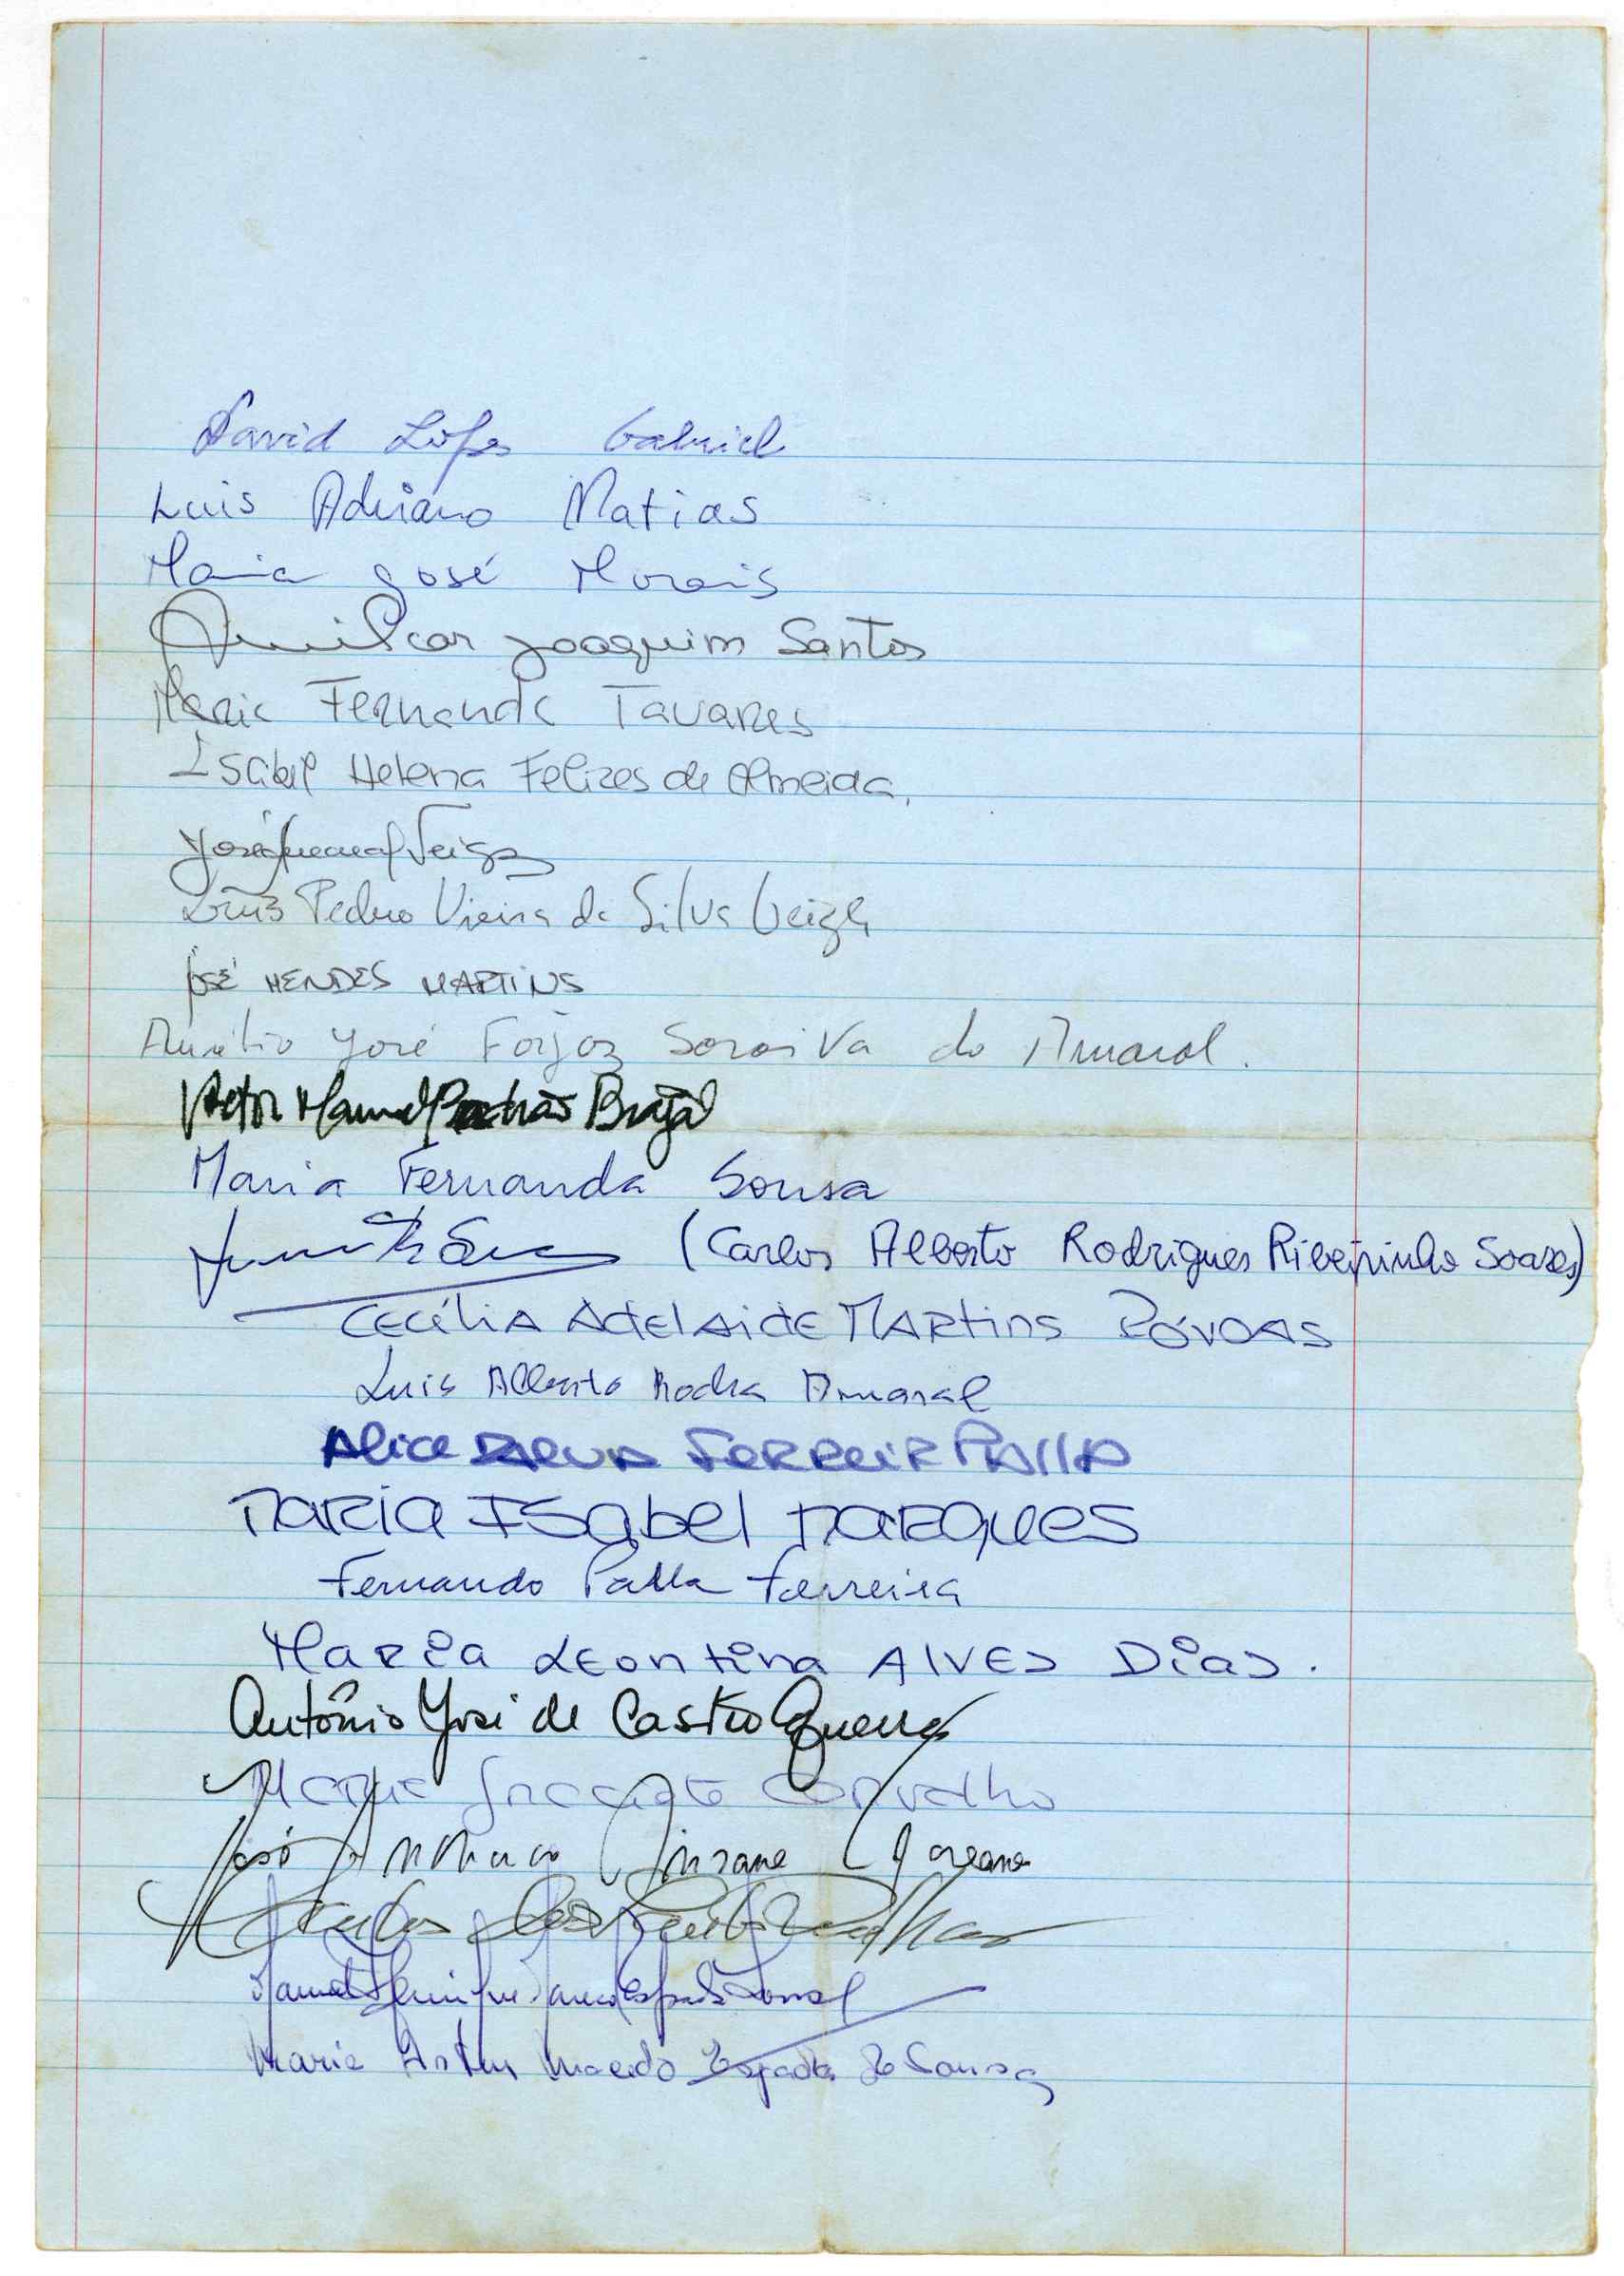 David Lopes Gabriel
Luis Adriano Matias
Maria José Morais
Amilcar Joaquim Santos
Maria Fernanda Tavares
Isabel Helena Felizes de Almeida.
José Manuel Veiga
Luís Pedro Vieira da Silva Veiga
JOSÉ MENDES MARTINS
Aurélio José Forjaz Saraiva do Amaral.
Victor Manuel Brajal
Maria Fernanda Sousa
(Carlos Alberto Rodrigues Ribeirinho Soares)
CECÍLIA ADELAIDE MARTINS PÓVOAS
Luis Alberto Rocha Amaral
Alice PALLA
MARIA ISabel MARQUES
Fernando Palla Ferreira
MARia LEontina ALVES Dias.
António José de Castro Guerra
Carvalho
José
Carlos
Manuel Henrique
Maria Espada de Sousa